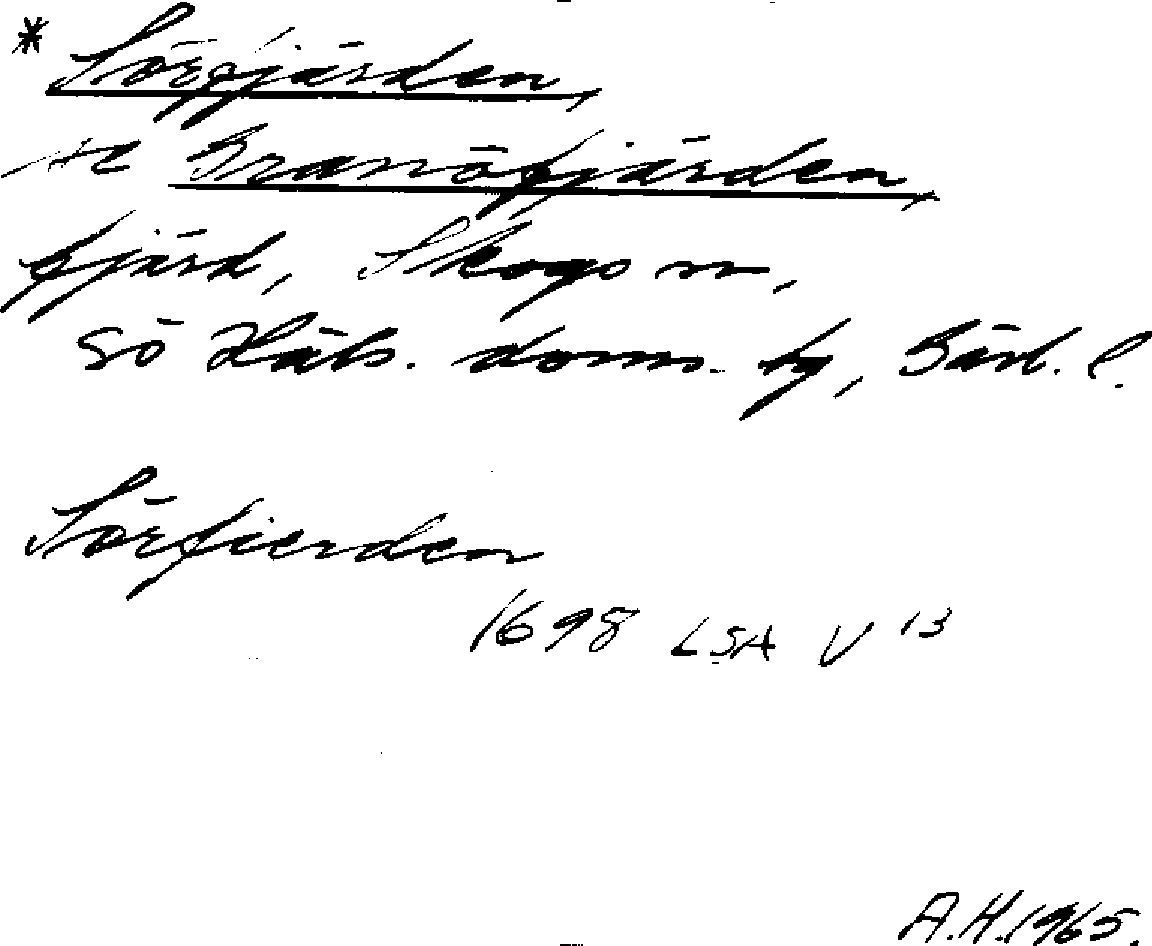 * Sörfjärden,
se Granöfjärden,
fjärd, Skogs sn,
sö Häls. doms. tg, Gävl. l.
Sörfierden
1698 LSA V 13
A.H. 1965.